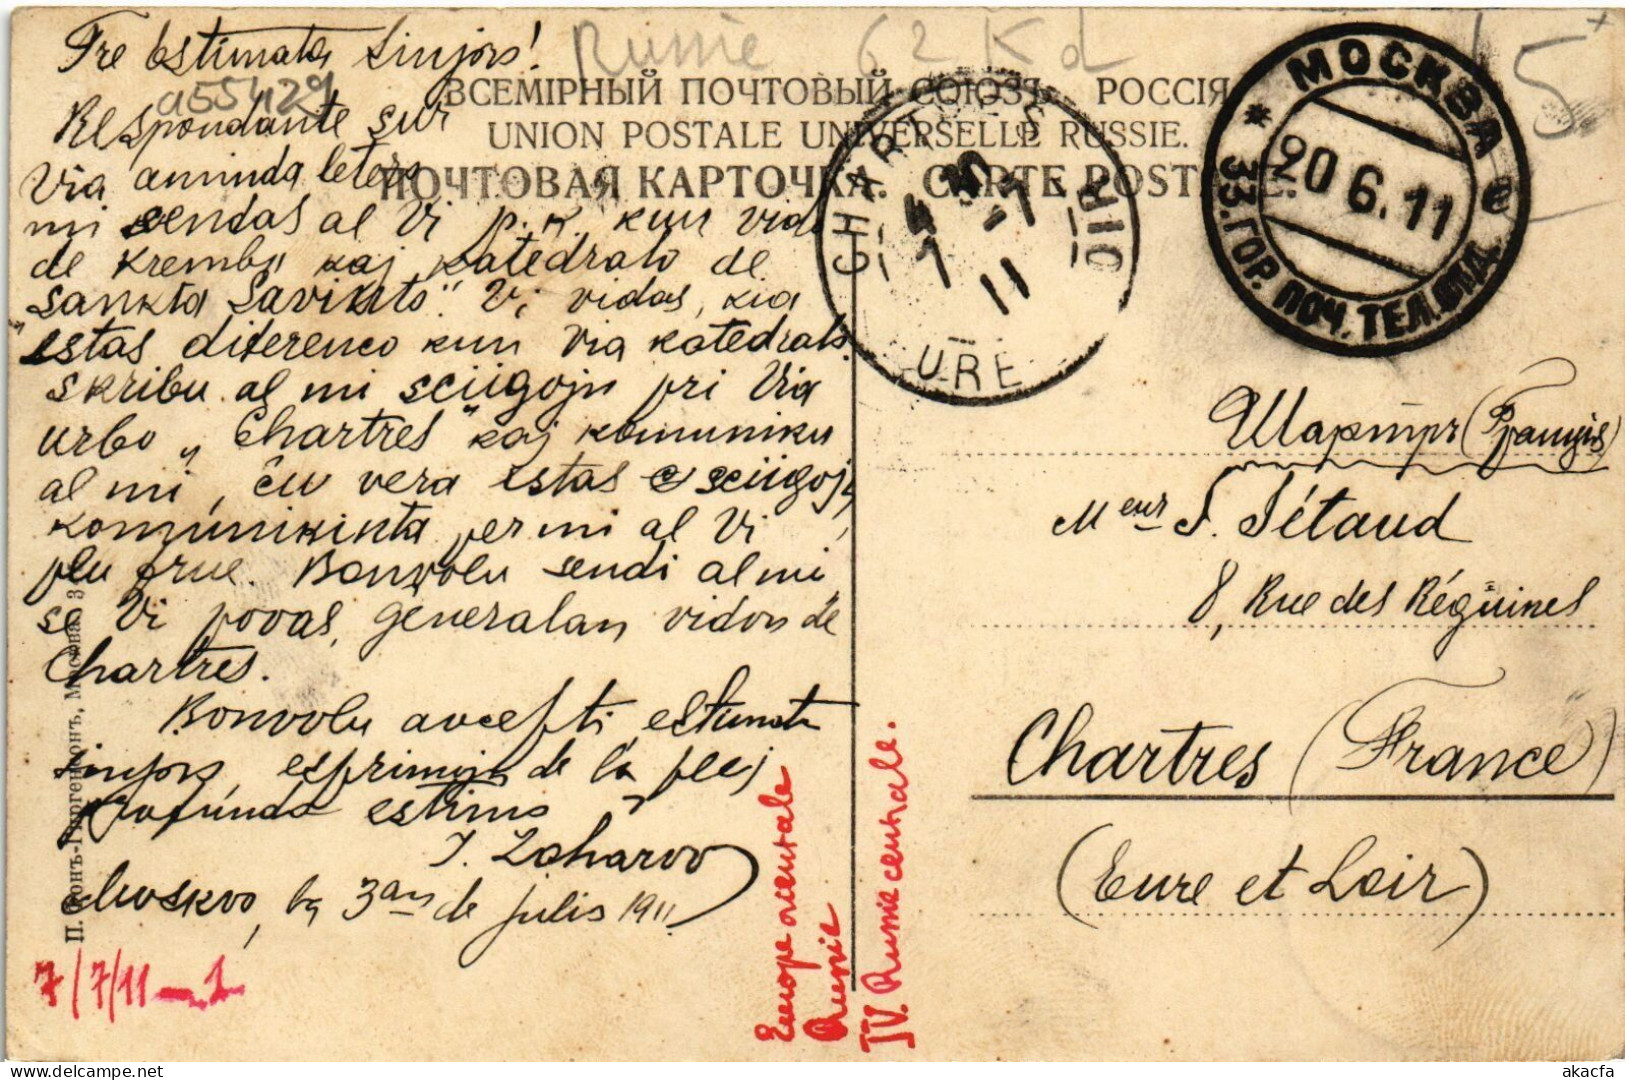 Tre estimata sinjoro!
Russie 62 Kd 5
a55429
ВСЕМІРНЫЙ ПОЧТОВЫЙ СОЮЗЪ. РОССІЯ
UNION POSTALE UNIVERSELLE RUSSIE.
ПОЧТОВАЯ КАРТОЧКА. CARTE POSTALE.
Respondante sur
Via aminda letero
mi sendas al Vi p. k. kun vido
de Kremlo kaj katedralo de
"Sankta Savinto". Vi vidas, kia
estas diferenco kun Via katedralo.
skribu al mi sciigojn pri Via
urbo „Chartres" kaj komuniku
al mi, ĉu vera estas sciigoj,
komunikinta per mi al Vi
plu frue. Bonvolu sendi al mi,
se Vi povas, generalan vidon de
Chartres.
Bonvolu akcepti estimata
sinjoro esprimojn de la plej
profunda estimo
J. Zaharov
Moskvo, la 3an de julio 1911
7/7/11 – 1
П. фонъ-Гиргенсонъ, Москва. 3
Europe orientale
Russie
IV. Russie centrale.
CHARTRES
4 30
7 -7
11
EURE
LOIR
МОСКВА
20 6. 11
33. ГОР. ПОЧ. ТЕЛ. ОТД.
Шартръ (Франція)
Meur S. Sétaud
8, Rue des Réguines
Chartres (France)
(Eure et Loir)
akacfa